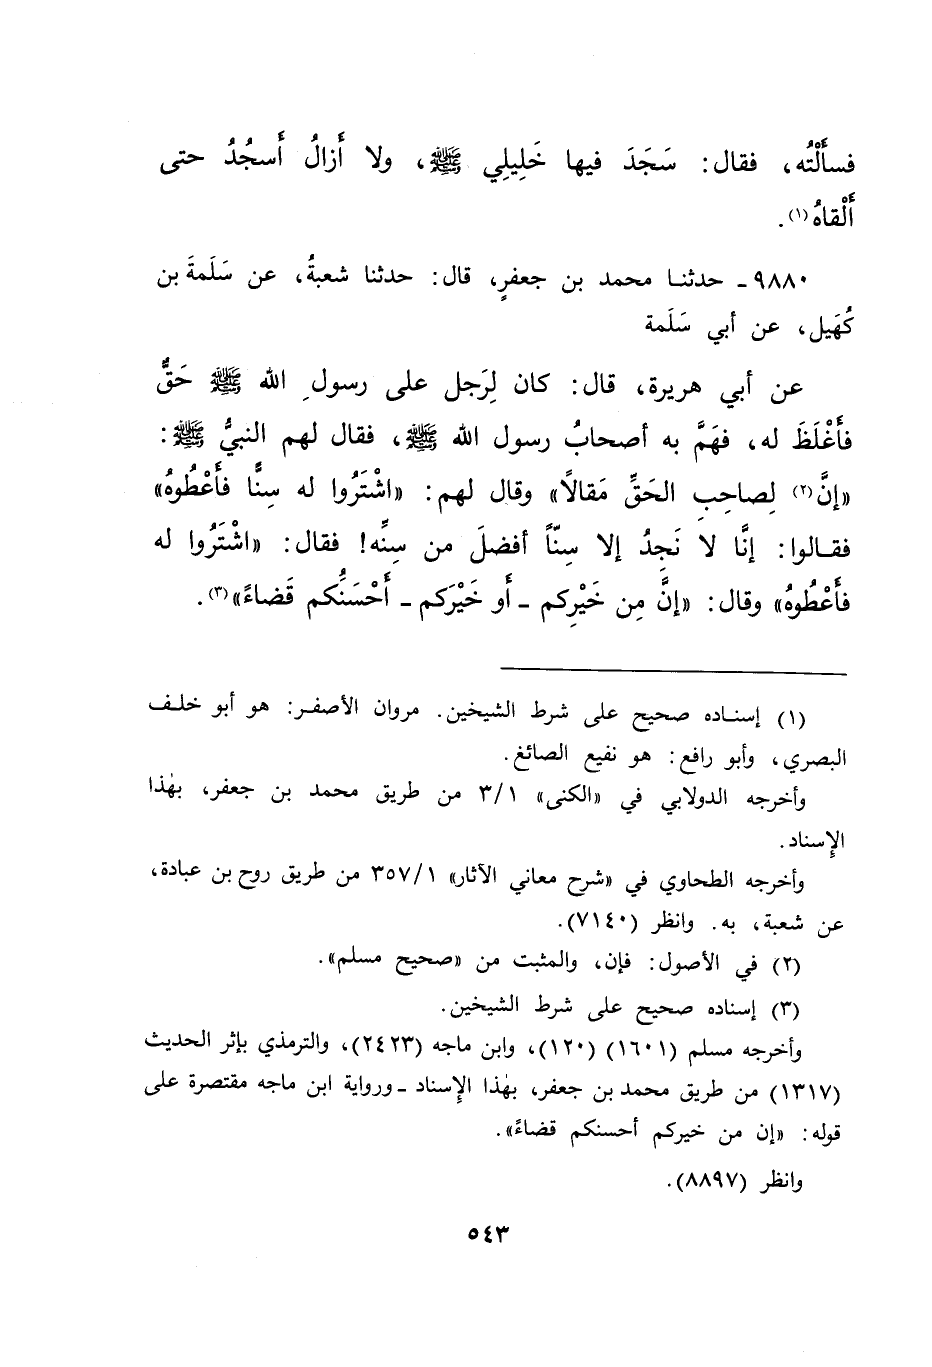 فسأَلْتُه، فقال: سَجَدَ فيها خَلِيلِي ﷺ، ولا أَزالُ أَسجُدُ حتى
أَلْقاهُ(١).
٩٨٨٠ـ حدثنا محمد بن جعفرٍ، قال: حدثنا شعبةُ، عن سَلَمةَ بن
كُهَيل، عن أبي سَلَمة
عن أبي هريرة، قال: كان لِرَجل على رسولِ الله ﷺ حَقٌّ
فأَغْلَظَ له، فهَمَّ به أصحابُ رسول الله ﷺ، فقال لهم النبيُّ ﷺ:
«إنَّ(٢) لِصاحِبِ الحَقِّ مَقالاً» وقال لهم: «اشْتَرُوا له سِنًّا فأَعْطُوهُ»
فقالوا: إنَّا لا نَجِدُ إلا سِنّاً أفضلَ من سِنِّه! فقال: «اشْتَرُوا له
فأَعْطُوهُ» وقال: «إنَّ مِن خَيْرِكم ـ أَو خَيْرَكم ـ أَحْسَنُكم قَضاءً»(٣).
(١) إسناده صحيح على شرط الشيخين. مروان الأصفر: هو أبو خلف
البصري، وأبو رافع: هو نفيع الصائغ.
وأخرجه الدولابي في «الكنى» ٣/١ من طريق محمد بن جعفر، بهٰذا
الإِسناد.
وأخرجه الطحاوي في «شرح معاني الآثار» ٣٥٧/١ من طريق روح بن عبادة،
عن شعبة، به. وانظر (٧١٤٠).
(٢) في الأصول: فإن، والمثبت من «صحيح مسلم».
(٣) إسناده صحيح على شرط الشيخين.
وأخرجه مسلم (١٦٠١) (١٢٠)، وابن ماجه (٢٤٢٣)، والترمذي بإثر الحديث
(١٣١٧) من طريق محمد بن جعفر، بهٰذا الإِسناد ـ ورواية ابن ماجه مقتصرة على
قوله: «إن من خيركم أحسنكم قضاءً».
وانظر (٨٨٩٧).
٥٤٣